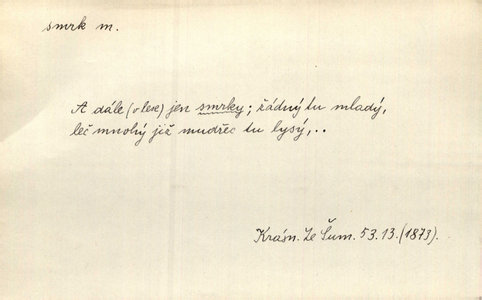 smrk m.
A dále (v lese) jen smrky; žádný tu mladý,
leč mnohý již mudřec tu lysý,..
Krásn. Ze Šum. 53.13.(1873).